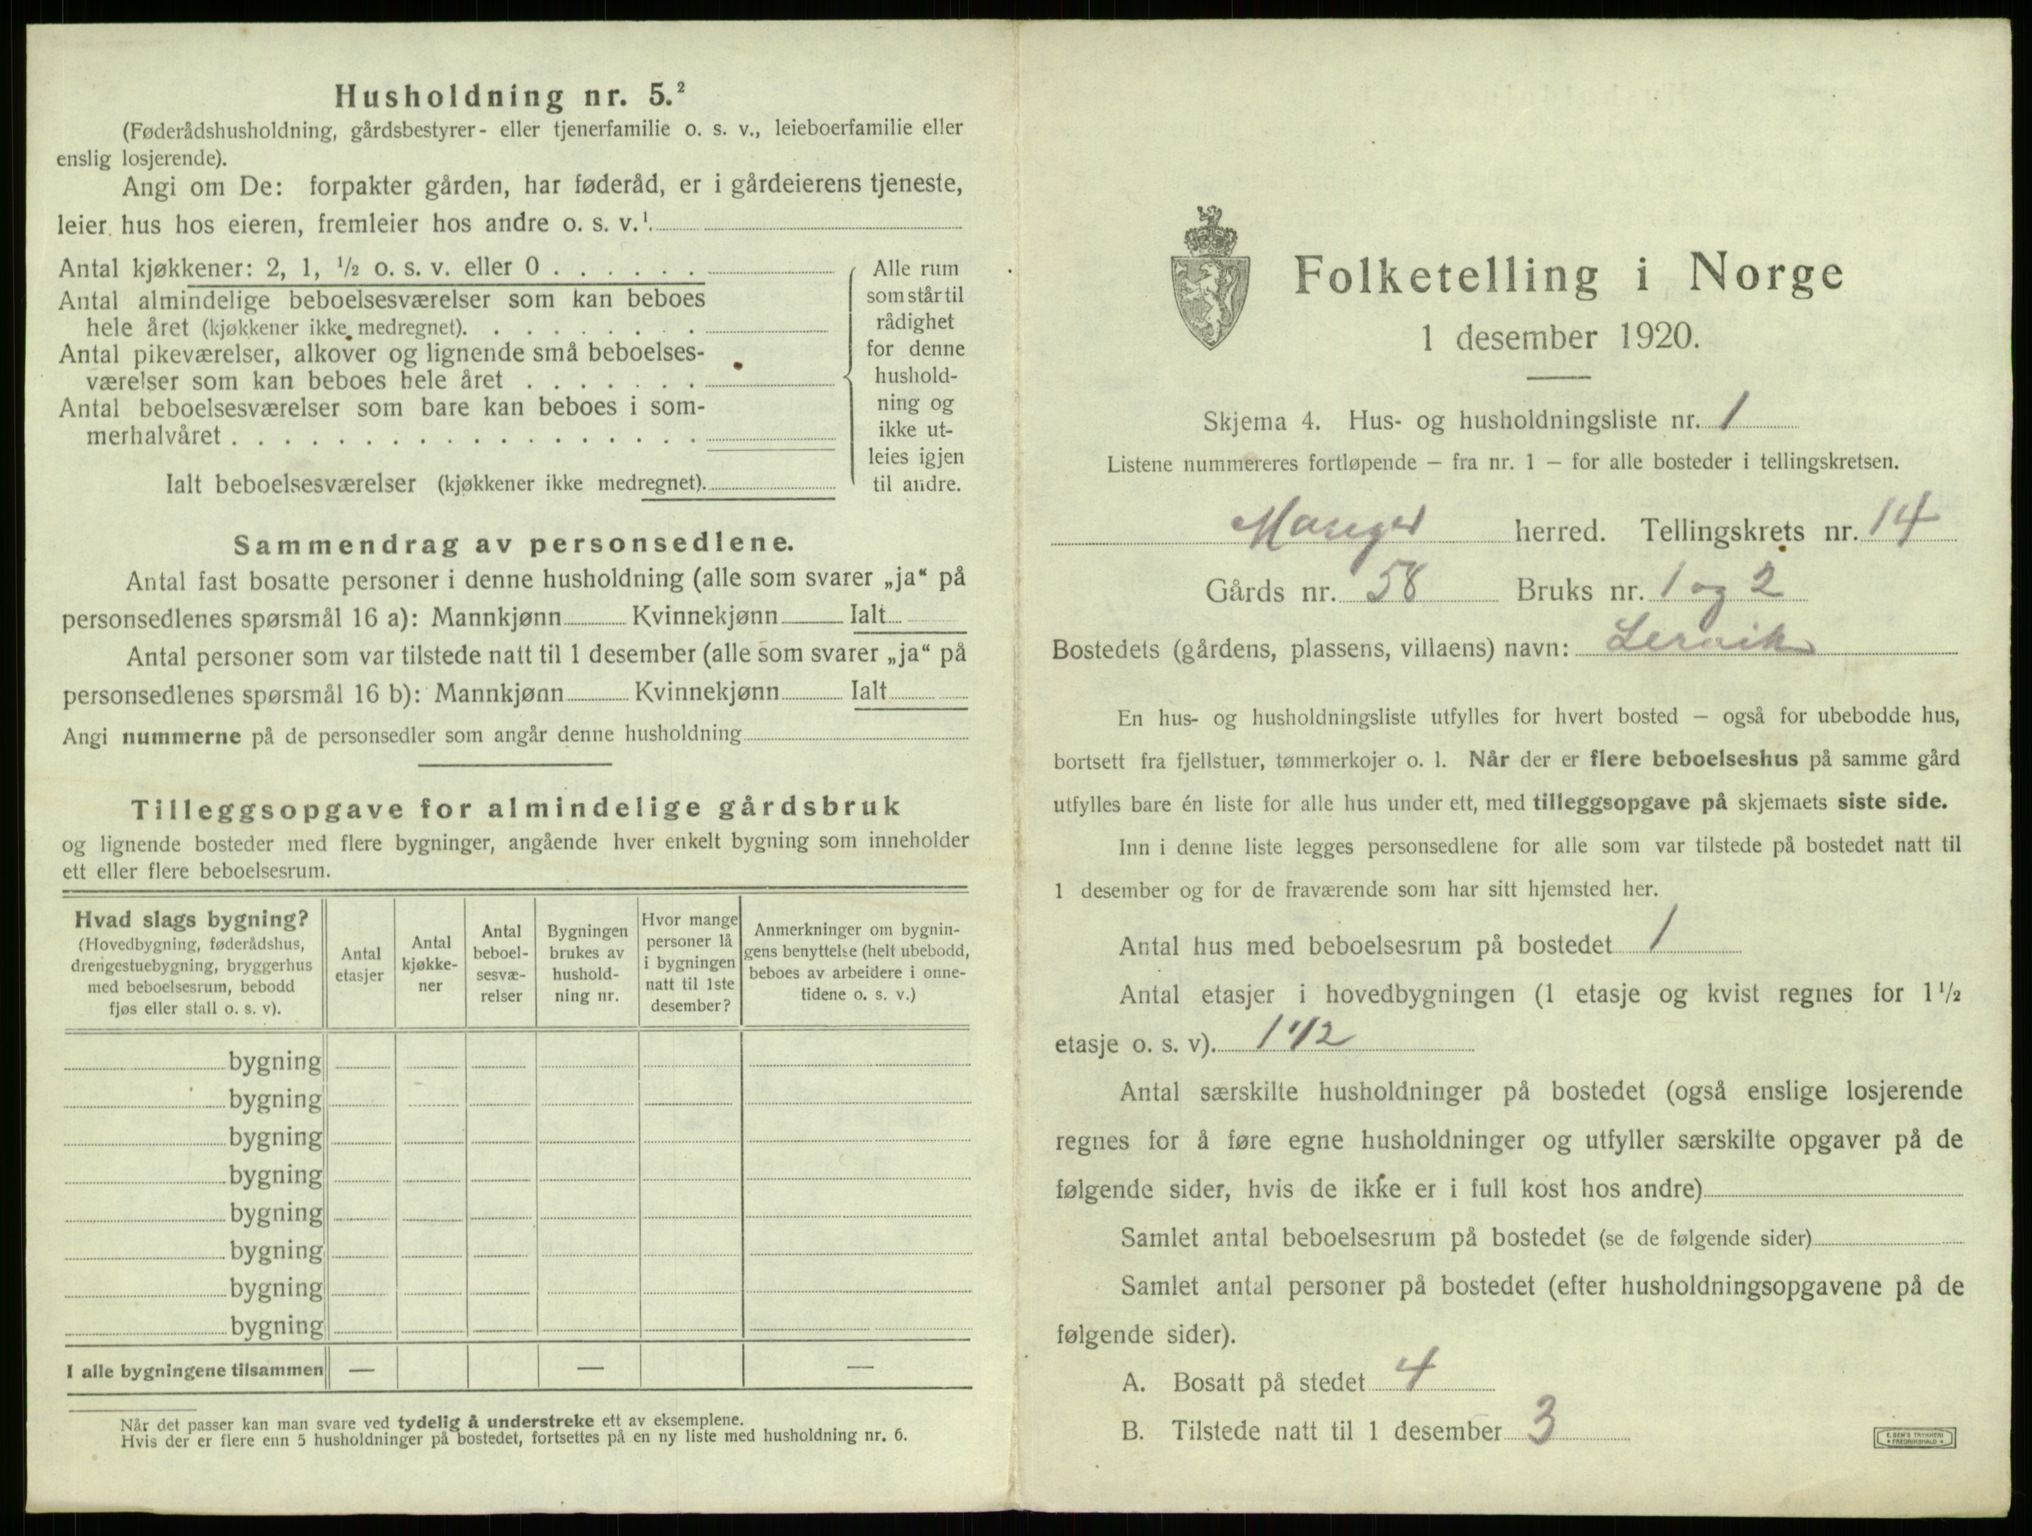 Husholdning nr. 5.²
(Føderådshusholdning, gårdsbestyrer- eller tjenerfamilie o. s. v., leieboerfamilie eller
enslig losjerende).
Angi om De: forpakter gården, har føderåd, er i gårdeierens tjeneste,
leier hus hos eieren, fremleier hos andre o. s. v.¹
Antal kjøkkener: 2, 1, ½ o. s. v. eller 0 . . . . . .
Antal almindelige beboelsesværelser som kan beboes
hele året (kjøkkener ikke medregnet). . . . . . . . .
Antal pikeværelser, alkover og lignende små beboelses-
værelser som kan beboes hele året . . . . . . .
Antal beboelsesværelser som bare kan beboes i som-
merhalvåret . . . . . . . . . . . . . . . . . .
Ialt beboelsesværelser (kjøkkener ikke medregnet).
Alle rum
som står til
rådighet
for denne
hushold-
ning og
ikke ut-
leies igjen
til andre.
Sammendrag av personsedlene.
Antal fast bosatte personer i denne husholdning (alle som svarer „ja“ på
personsedlenes spørsmål 16 a): Mannkjønn Kvinnekjønn Ialt
Antal personer som var tilstede natt til 1 desember (alle som svarer „ja“ på
personsedlenes spørsmål 16 b): Mannkjønn Kvinnekjønn Ialt
Angi nummerne på de personsedler som angår denne husholdning
Tilleggsopgave for almindelige gårdsbruk
og lignende bosteder med flere bygninger, angående hver enkelt bygning som inneholder
ett eller flere beboelsesrum.
Hvad slags bygning?
(Hovedbygning, føderådshus,
drengestuebygning, bryggerhus
med beboelsesrum, bebodd
fjøs eller stall o. s. v).
Antal
etasjer
Antal
kjøkke-
ner
Antal
beboel-
sesvæ-
relser
Bygningen
brukes av
hushold-
ning nr.
Hvor mange
personer lå
i bygningen
natt til 1ste
desember?
Anmerkninger om bygnin-
gens benyttelse (helt ubebodd,
beboes av arbeidere i onne-
tidene o. s. v.)
bygning
bygning
bygning
bygning
bygning
bygning
bygning
bygning
I alle bygningene tilsammen — — —
Når det passer kan man svare ved tydelig å understreke ett av eksemplene.
Hvis der er flere enn 5 husholdninger på bostedet, fortsettes på en ny liste med husholdning nr. 6.
Folketelling i Norge
1 desember 1920.
Skjema 4. Hus- og husholdningsliste nr. 1
Listene nummereres fortløpende – fra nr. 1 – for alle bosteder i tellingskretsen.
Manger herred. Tellingskrets nr. 14
Gårds nr. 58 Bruks nr. 1 og 2
Bostedets (gårdens, plassens, villaens) navn: Lervik
En hus- og husholdningsliste utfylles for hvert bosted – også for ubebodde hus,
bortsett fra fjellstuer, tømmerkojer o. l. Når der er flere beboelseshus på samme gård
utfylles bare én liste for alle hus under ett, med tilleggsopgave på skjemaets siste side.
Inn i denne liste legges personsedlene for alle som var tilstede på bostedet natt til
1 desember og for de fraværende som har sitt hjemsted her.
Antal hus med beboelsesrum på bostedet 1
Antal etasjer i hovedbygningen (1 etasje og kvist regnes for 1 ½
etasje o. s. v). 1 1/2
Antal særskilte husholdninger på bostedet (også enslige losjerende
regnes for å føre egne husholdninger og utfyller særskilte opgaver på de
følgende sider, hvis de ikke er i full kost hos andre)
Samlet antal beboelsesrum på bostedet (se de følgende sider)
Samlet antal personer på bostedet (efter husholdningsopgavene på de
følgende sider).
A. Bosatt på stedet 4
B. Tilstede natt til 1 desember 3
E. SEM'S TRYKKERI
FREDRIKSHALD